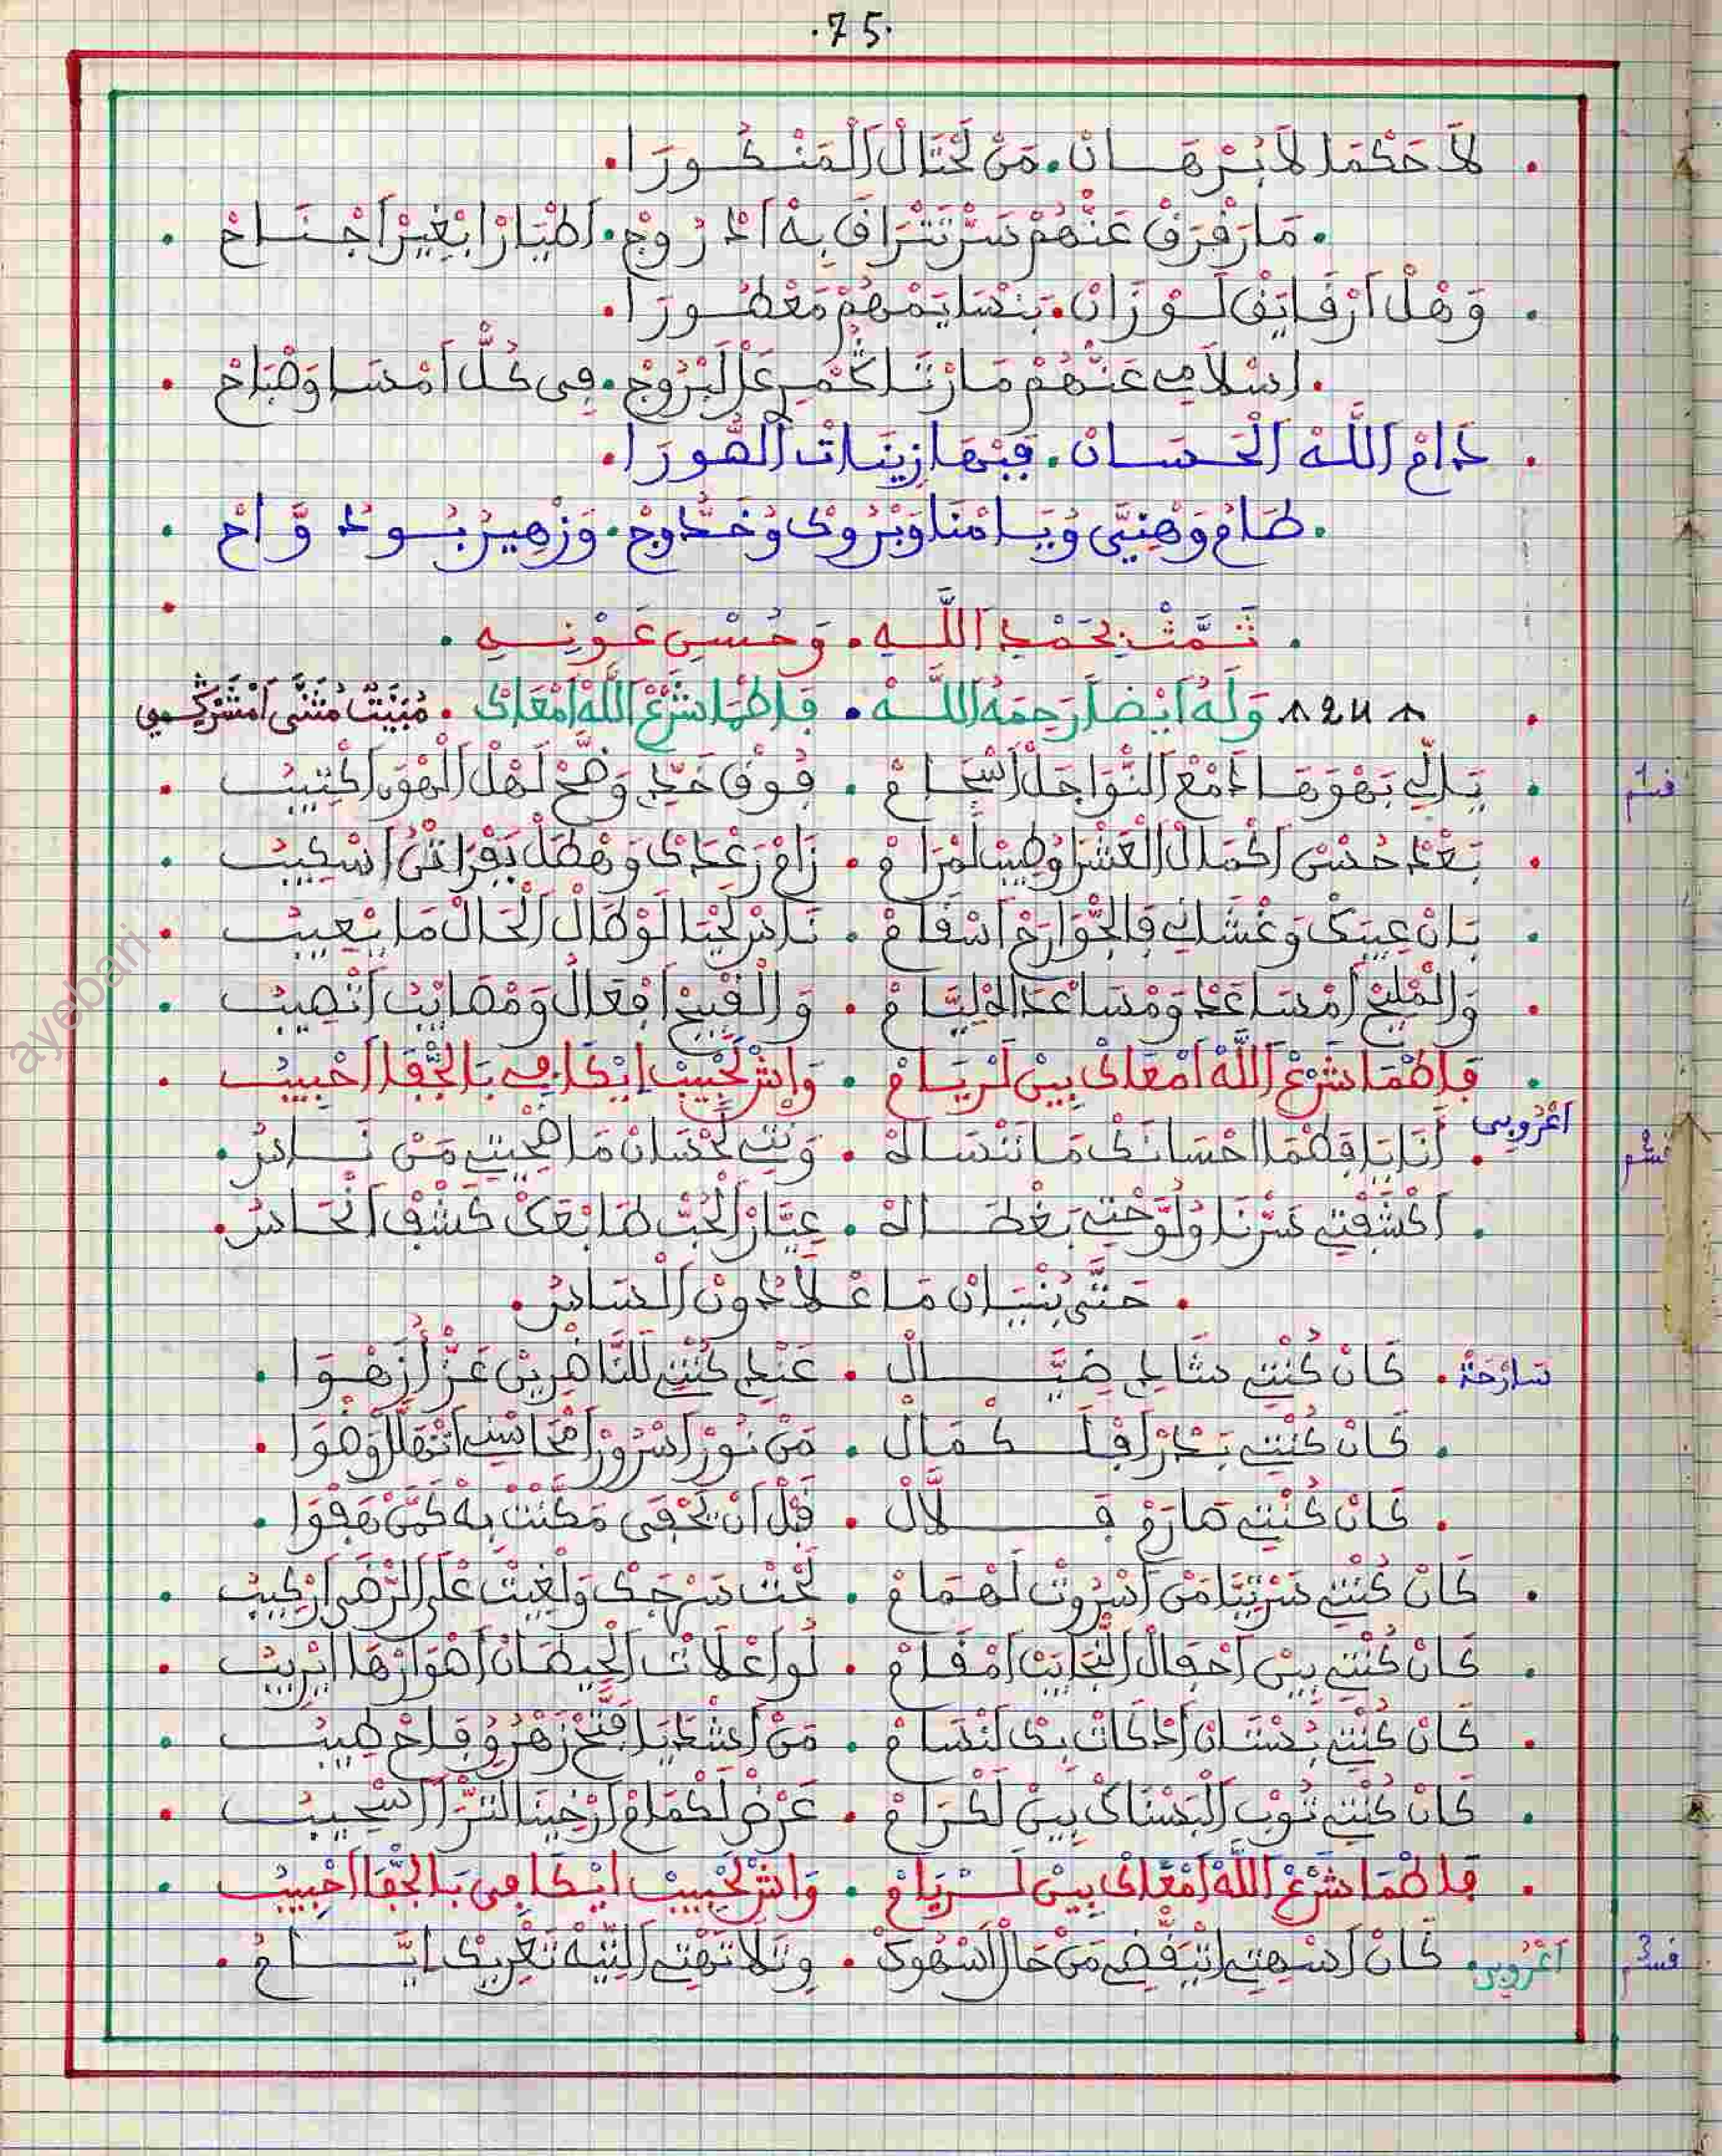 .75.
لَا حَكْمَا لَا بُرْهَانْ . مَنْ لَحْتَالْ الْمَنْكُورَا .
. مَا رْفَرَقْ عَنْهُمْ سَرْ نَتْرَافَقْ بِهْ ادْرُوجْ . اطْيَارْ ابْغِيرْ اجْنَاحْ .
. وَهْلْ ارْقَايَقْ لَوْزَانْ . بَنْسَايَمْهُمْ مَعْطُورَا .
. اسْلَامِي عَنْهُمْ مَا رْتَاكْمِ عْلَ لَبْرُوجْ . فِي كُلّْ امْسَا وَصْبَاحْ .
. دَامْ اللَّهْ الْحَسَانْ . فِبْهَا زِينَاتْ الصُّورَا .
. طَامُ وَهْنِيَّ وُيَامْنَا وَبْرُوكْ وُخَدُّوجْ . وَزْهِيرُ بُودْ وَّاحْ .
. تَمَّتْ بِحَمْدِ اللَّهِ . وَحُسْنِ عَوْنِهِ .
124 وَلَهُ أَيْضاً رَحِمَهُ اللَّهْ . فَاطْمَا شَرْعْ اللَّهْ امْعَاكْ . مُبَيَّتْ مُثَنَّى امْشَرْكِي
قسم 1 . يَالِّي بَهْوَهَا دَمْعْ النَّوَاجَلْ اسْجَامْ . فُوقْ خَدِّي وَضَّحْ لَهْلْ الْهْوَى اكْتِيبُ .
. بَعْدْ حُسْنْ اكْمَالْ الْعَشْرَا وُطِيبْ لَمْرَامْ . زَامْ رَعْدَكْ وَهْطَلْ بَفْرَاتْنُ اسْكِيبُ .
. بَانْ عِيبَكْ وَغْشَاكِ فَالْجْوَارَحْ اسْقَامْ . نَاسْ لَحْيَا لَوْ طَالْ الْحَالْ مَا يْعِيبُ .
. وَالْمْلِيحْ امْسَاعَدْ وَمْسَاعْدَاهْ لِيَّامْ . وَالْقْبِيحْ افْعَالُ وَمْصَايْبُ اتْصِيبُ .
. فَاطْمَا شَرْعْ اللَّهْ امْعَاكْ بِينْ لَرْيَامْ . وَاشْ لَحْبِيبْ ايْكَافِي بَالْجْفَا احْبِيبُ .
قسم 2 اعْرُوبِي . أَنَا يَا فَطْمَا احْسَانَكْ مَا نَنْسَاهْ . وَنْتِ لَحْسَانْ مَا اصْحِيتِ مَنْ نَاسُ .
. اكْشَفْتِ سَرْنَا وُلُوَّحْتِ بَغْطَاهْ . عِيَّارْ الْحُبّْ طَابْعَكْ كَشْفْ انْحَاسُ .
. حَتَّى بُنْيَانْ مَا عْلَا دُونْ الْسَاسُ .
سَارْحَةْ . كَانْ كُنْتِ شَادِي ضَيَّالْ . عَنْدِي كُنْتِ لَلنَّاظْرِينْ عَزّْ ازْهْوَا .
. كَانْ كُنْتِ بَدْرْ افْلَكْمَالْ . مَنْ نُورْ اسْرُورْ امْحَاسْنِ اتْهَلَّ وَضْوَا .
. كَانْ كُنْتِ صَارَمْ فَلَّالْ . قَبْلْ أَنْ يَحْفَى مَكَّنْتْ بِهْ كَمَّنْ هَفْوَا .
. كَانْ كُنْتِ سَرْتِيَّا مَنْ اسْرُوتْ لَهْمَامْ . لَحْتْ سَرْجَكْ وَلْغِيتْ عْلَى الرّْضَى ارْكِيبُ .
. كَانْ كُنْتِ بِينْ احْفَالْ النّْجَايَبْ امْقَامْ . لُو اعْلَاتْ الْحِيطَانْ اصْوَارْهَا ايْرِيبُ .
. كَانْ كُنْتِ بُسْتَانْ اذْكَاتْ بِكْ لَنْسَامْ . مَنْ اشْدَايَا فَتَّحْ زَهْرُ وُفَاحْ طِيبُ .
. كَانْ كُنْتِ تُوبْ الْبَسْنَاكْ بِينْ لَكْرَامْ . عَرْضْ لَكْمَامْ ارْخِينَا لَلتّْرَا اسْحِيبُ .
. فَاطْمَا شَرْعْ اللَّهْ امْعَاكْ بِينْ لَرْيَامْ . وَاشْ لَحْبِيبْ ايْكَافِي بَالْجْفَا احْبِيبُ .
قسم 3 اعْرُوبِي . كَانْ اسْهِيتِ اتْيَقّْضِي مَنْ حَالْ اسْهُوكْ . وَتْلَا تَهْتِ الْتِّيهْ تَغْرِيكْ ايَّامُ .
ayebari